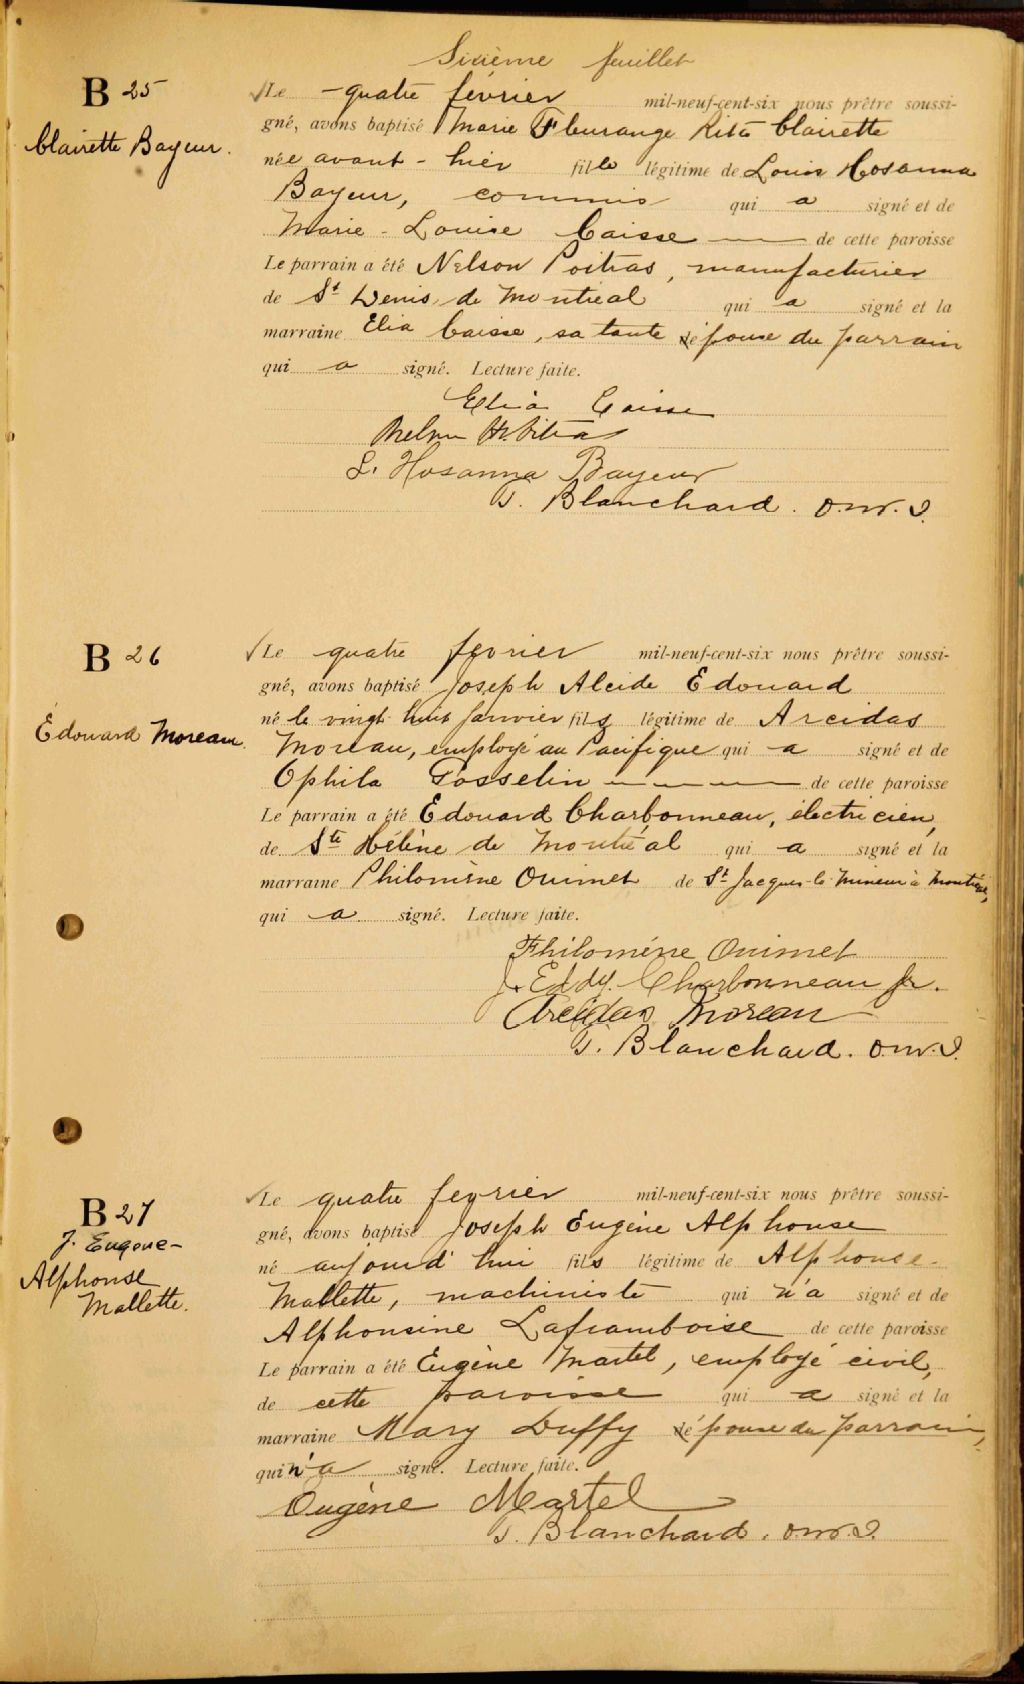 Sixième feuillet
B 25
Clairette Bayeur.
Le quatre février mil-neuf-cent-six nous prêtre soussi-
gné, avons baptisé Marie Fleurange Rita Clairette
née avant-hier fille légitime de Louis Hosanna
Bayeur, commis qui a signé et de
Marie-Louise Caisse de cette paroisse
Le parrain a été Nelson Poitras, manufacturier
de St Denis de Montréal qui a signé et la
marraine Elia Caisse, sa tante épouse du parrain
qui a signé. Lecture faite.
Elia Caisse
Nelson Poitras
L. Hosanna Bayeur
T. Blanchard. O.M.I.
B 26
Édouard Moreau.
Le quatre février mil-neuf-cent-six nous prêtre soussi-
gné, avons baptisé Joseph Alcide Edouard
né le vingt-huit janvier fils légitime de Arcidas
Moreau, employé au Pacifique qui a signé et de
Ophila Gosselin de cette paroisse
Le parrain a été Edouard Charbonneau, électricien,
de Ste Hélène de Montréal qui a signé et la
marraine Philomène Ouimet de St Jacques-le-Mineur à Montréal,
qui a signé. Lecture faite.
Philomène Ouimet
J. Eddy. Charbonneau Jr.
Arcidas Moreau
T. Blanchard. O.M.I.
B 27
J. Eugène-
Alphonse
Mallette.
Le quatre février mil-neuf-cent-six nous prêtre soussi-
gné, avons baptisé Joseph Eugène Alphonse
né aujourd'hui fils légitime de Alphonse
Mallette, machiniste qui n'a signé et de
Alphonsine Laframboise de cette paroisse
Le parrain a été Eugène Martel, employé civil,
de cette paroisse qui a signé et la
marraine Mary Duffy épouse du parrain,
qui n'a signé. Lecture faite.
Eugène Martel
T. Blanchard. O.M.I.